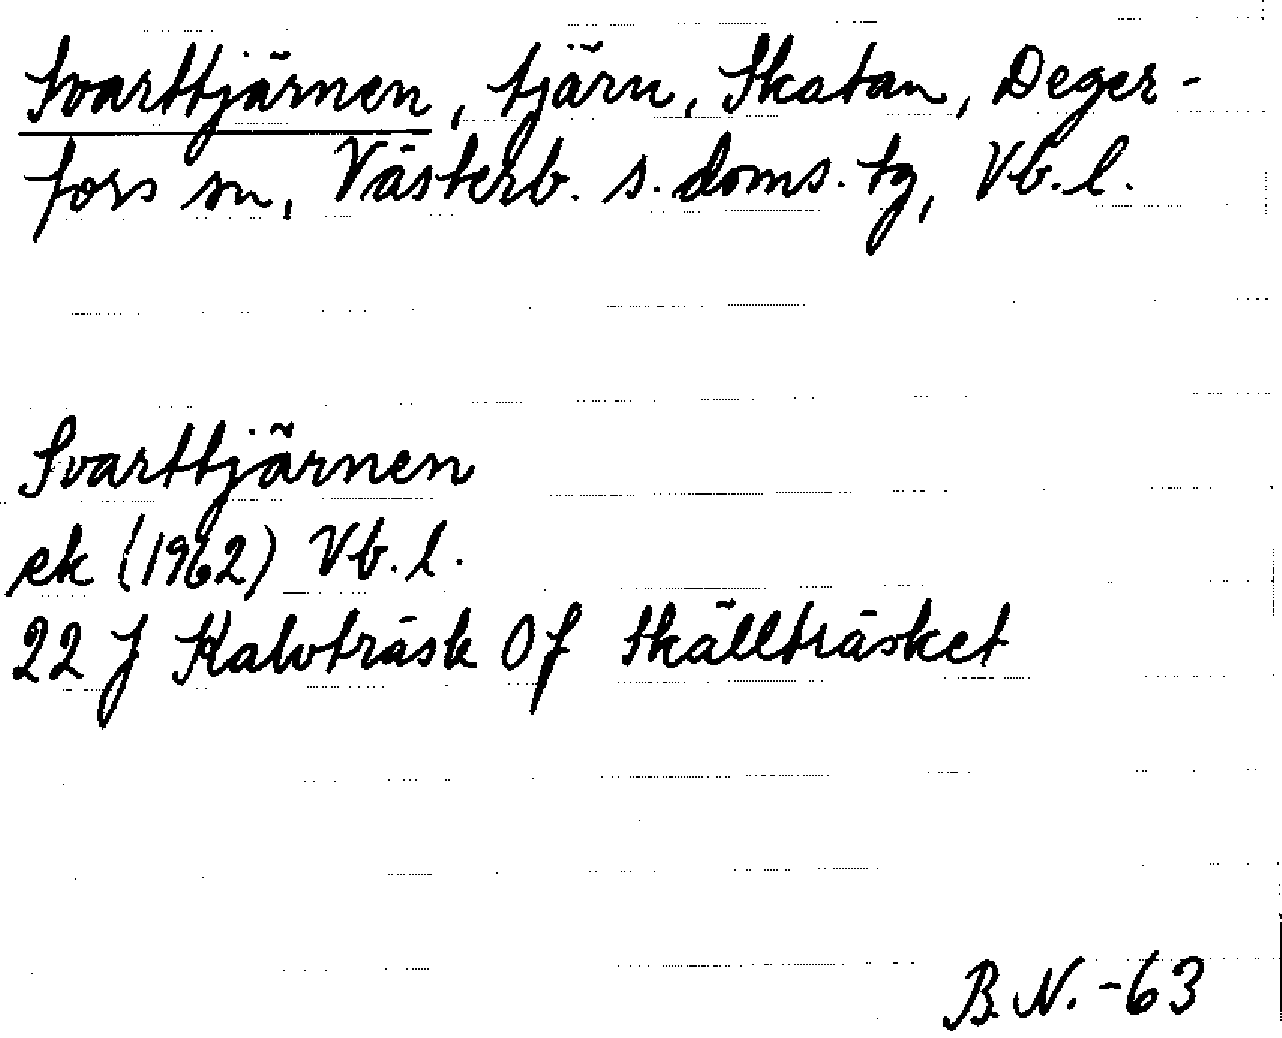 Svarttjärnen, tjärn, Skatan, Deger-
fors sn, Västerb. s. doms. tg, Vb. l.
Svarttjärnen
ek (1962) Vb. l.
22 J Kalvträsk 0f Skällträsket
B.N. -63